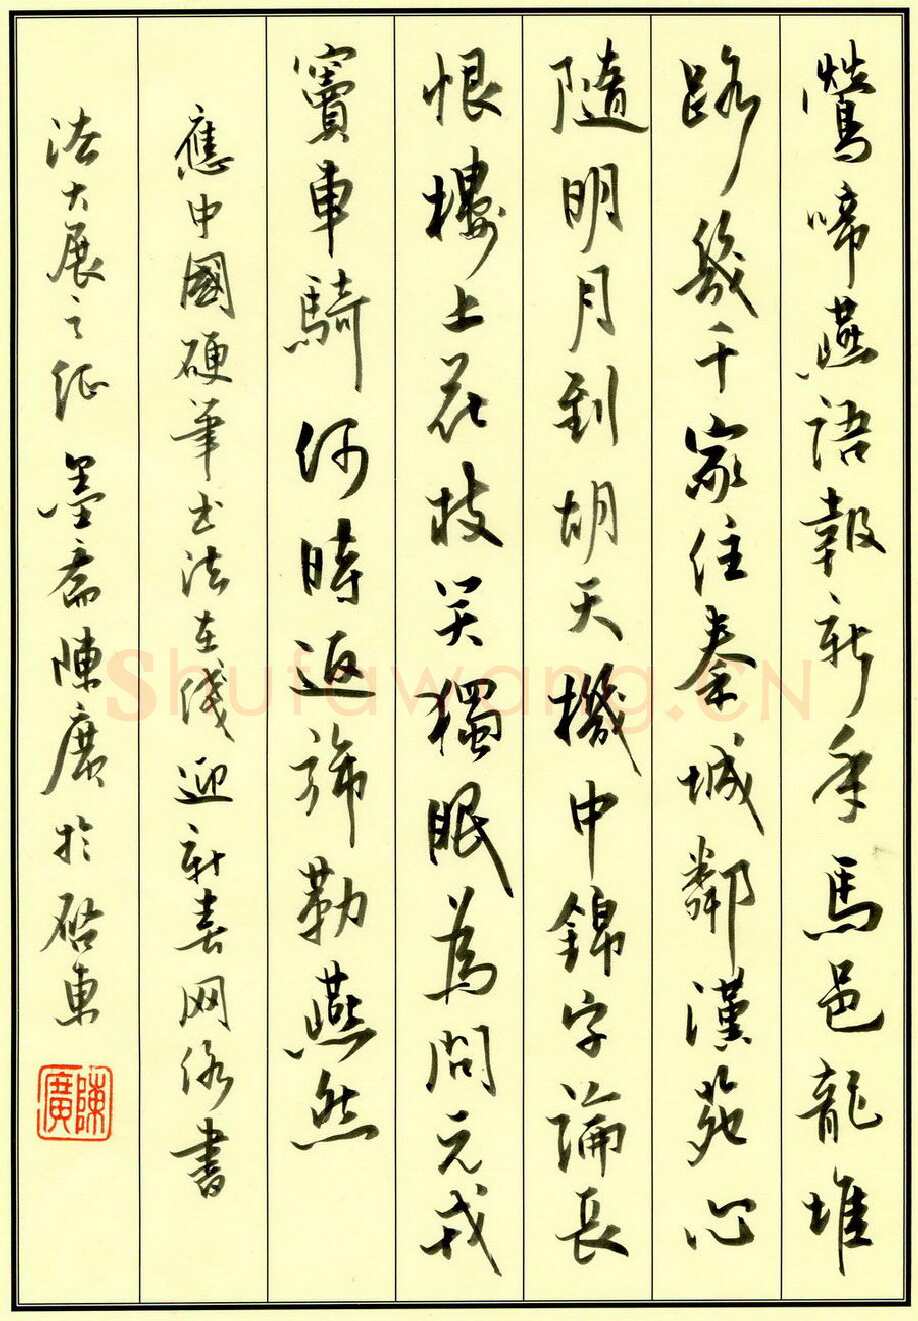 鶯啼燕語報新年馬邑龍堆
路幾千家住秦城鄰漢苑心
隨明月到胡天機中錦字論長
恨樓上花枝笑獨眠為問元戎
竇車騎何時返旆勒燕然
應中國硬筆书法在线迎新春网络書
法大展之征 墨斋陳廣於啟東
陳廣
Shufawang.CN